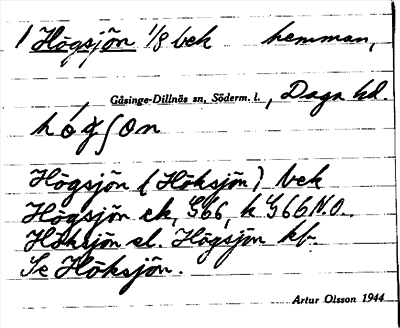 1 Högsjön 1/8 bek hemman,
Gåsinge-Dillnäs sn, Söderm. l., Daga hd.
Högsjön (Höksjön) bek
Högsjön ek, G66, k G66 N.O.
Höksjön el. Högsjön kf.
Se Höksjön.
Artur Olsson 1944